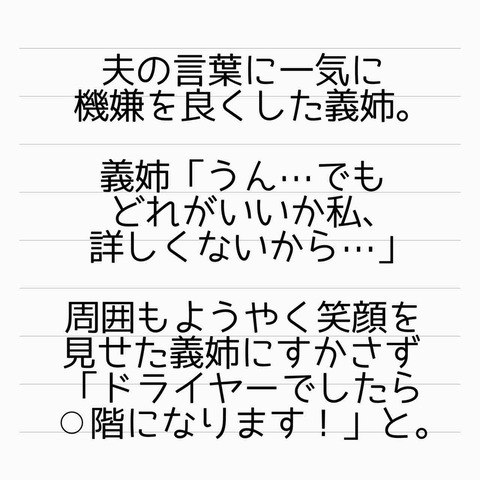 夫の言葉に一気に
機嫌を良くした義姉。
義姉「うん…でも
どれがいいか私、
詳しくないから…」
周囲もようやく笑顔を
見せた義姉にすかさず
「ドライヤーでしたら
○階になります！」と。